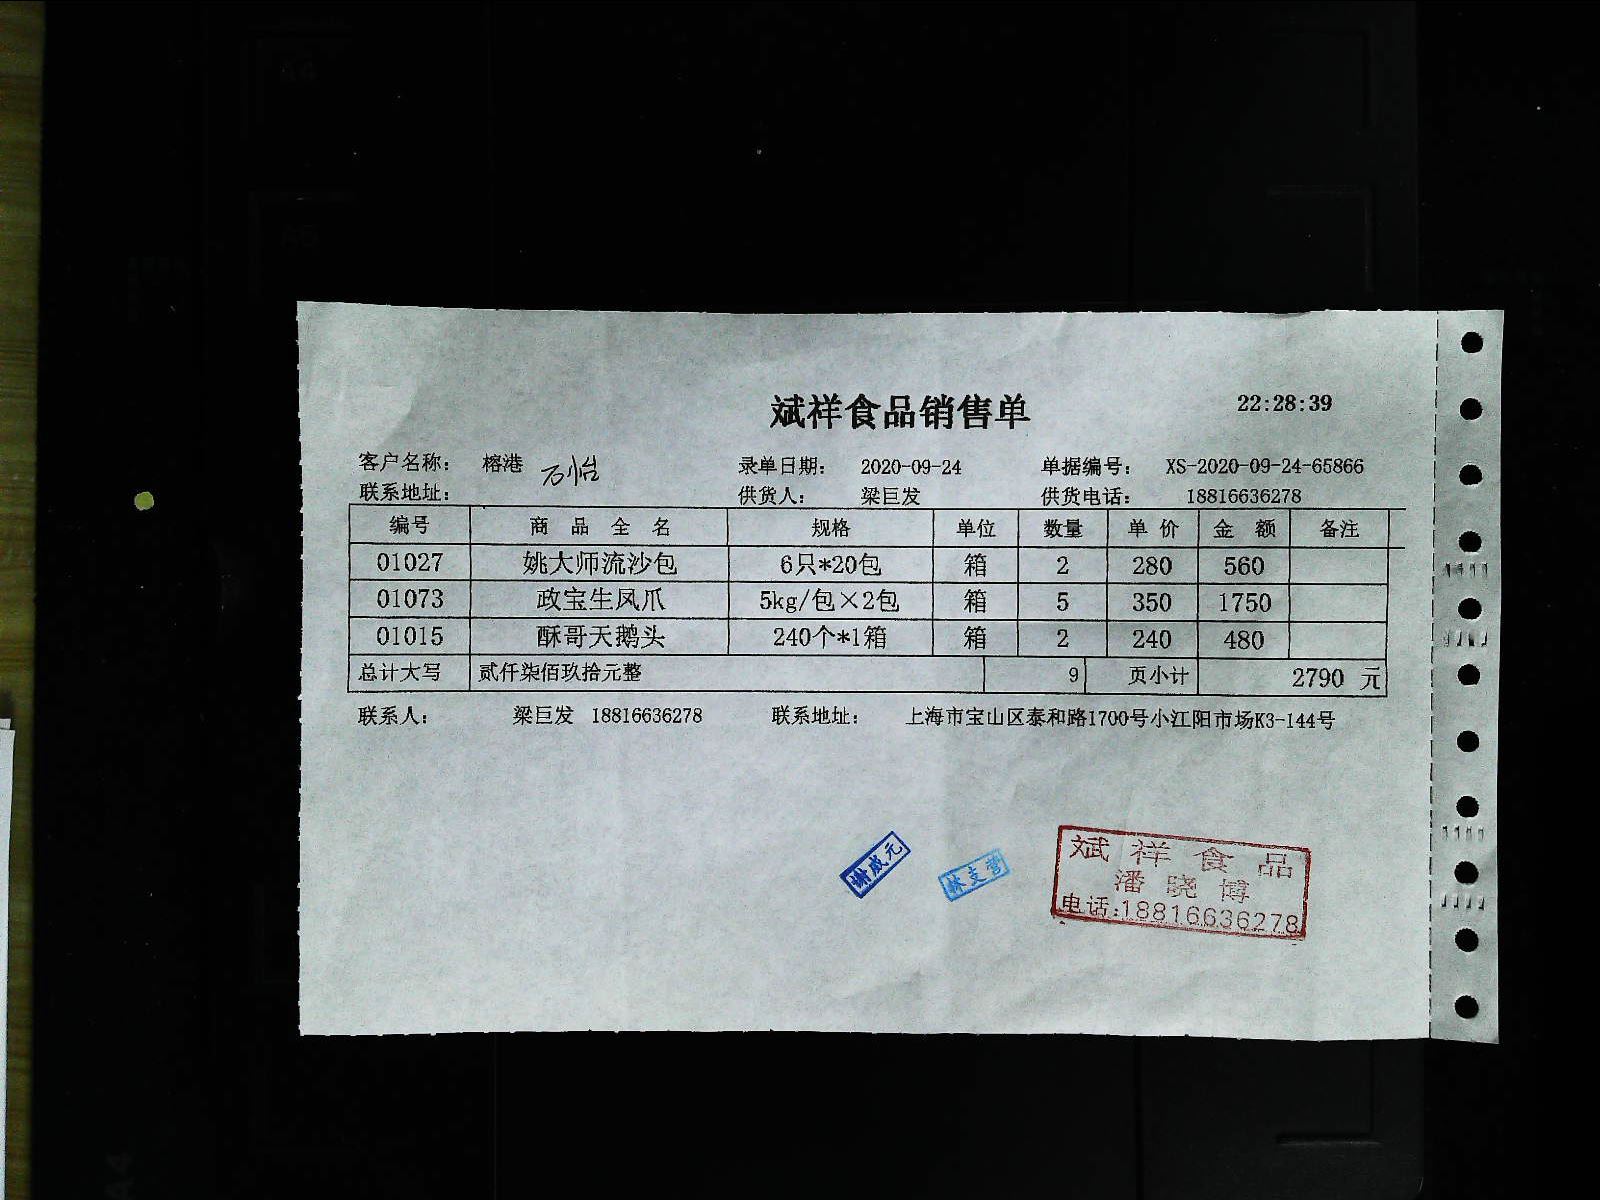 斌祥食品销售单 22:28:39
客户名称: 榕港 万怡 录单日期: 2020-09-24 单据编号: XS-2020-09-24-65866
联系地址: 供货人: 梁巨发 供货电话: 18816636278
编号 商品全名 规格 单位 数量 单价 金额 备注
01027 姚大师流沙包 6只*20包 箱 2 280 560
01073 政宝生凤爪 5kg/包×2包 箱 5 350 1750
01015 酥哥天鹅头 240个*1箱 箱 2 240 480
总计大写 贰仟柒佰玖拾元整 9 页小计 2790 元
联系人: 梁巨发 18816636278 联系地址: 上海市宝山区泰和路1700号小江阳市场K3-144号
谢成元
林支营
斌祥食品
潘晓博
电话:18816636278
A4
A5
A4